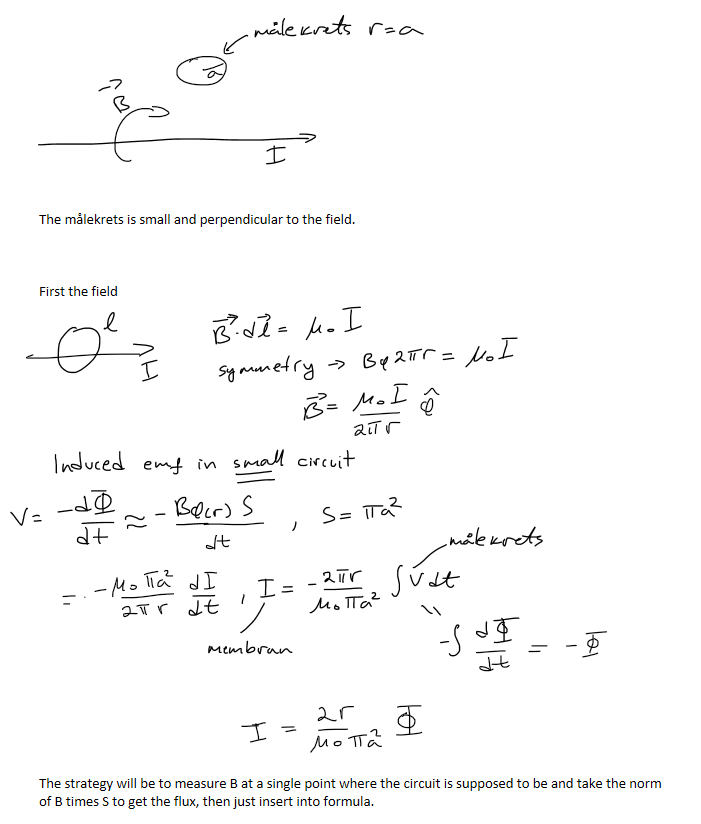 målekrets r=a
a
B⃗
I
The målekrets is small and perpendicular to the field.
First the field
l
I
B⃗·dl⃗ = μ₀ I
symmetry → Bφ 2πr = μ₀ I
B⃗ = μ₀ I / 2πr φ̂
Induced emf in small circuit
V = -dΦ/dt ≈ - Bφ(r) S / dt , S = πa²
målekrets
= -μ₀ πa² / 2πr dI/dt , I = - 2πr / μ₀ πa² ∫V dt
membran
-∫ dΦ/dt = -Φ
I = 2r / μ₀ πa² Φ
The strategy will be to measure B at a single point where the circuit is supposed to be and take the norm
of B times S to get the flux, then just insert into formula.